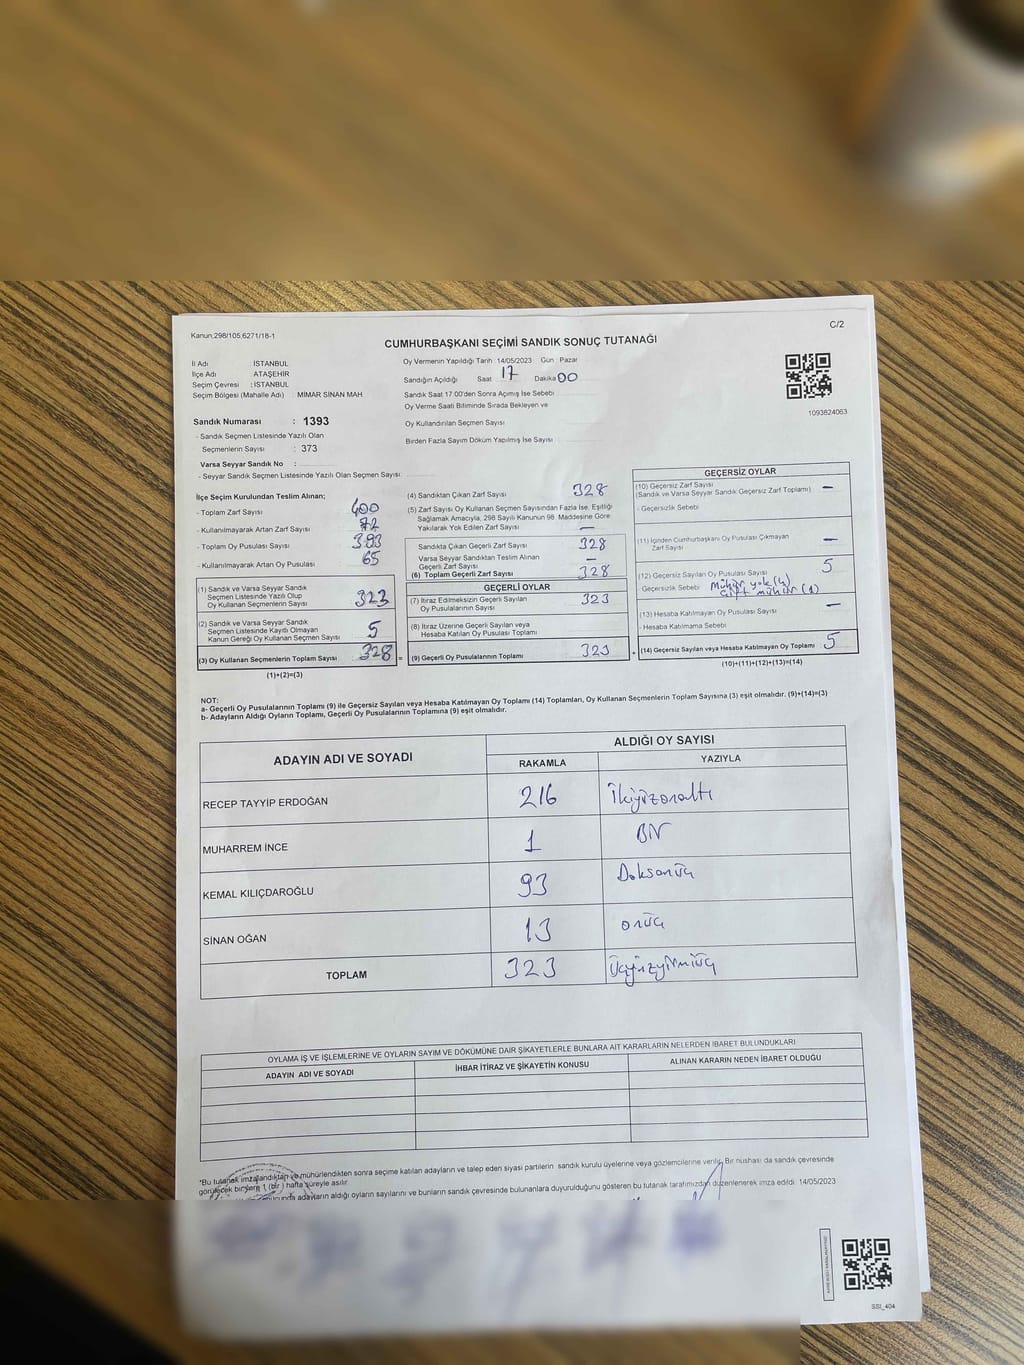 Kanun:298/105,6271/18-1
C/2
CUMHURBAŞKANI SEÇİMİ SANDIK SONUÇ TUTANAĞI
İl Adı İSTANBUL
İlçe Adı ATAŞEHİR
Seçim Çevresi : İSTANBUL
Seçim Bölgesi (Mahalle Adı) MİMAR SİNAN MAH
Sandık Numarası : 1393
- Sandık Seçmen Listesinde Yazılı Olan
Seçmenlerin Sayısı : 373
Varsa Seyyar Sandık No :
- Seyyar Sandık Seçmen Listesinde Yazılı Olan Seçmen Sayısı:
Oy Vermenin Yapıldığı Tarih 14/05/2023 Gün : Pazar
Sandığın Açıldığı Saat 17 Dakika 00
Sandık Saat 17:00'den Sonra Açımış İse Sebebi
Oy Verme Saati Bitiminde Sırada Bekleyen ve
Oy Kullandırılan Seçmen Sayısı
Birden Fazla Sayım Döküm Yapılmış İse Sayısı
1093824063
İlçe Seçim Kurulundan Teslim Alınan;
- Toplam Zarf Sayısı 400
- Kullanılmayarak Artan Zarf Sayısı 72
- Toplam Oy Pusulası Sayısı 393
- Kullanılmayarak Artan Oy Pusulası 65
(1) Sandık ve Varsa Seyyar Sandık
Seçmen Listesinde Yazılı Olup
Oy Kullanan Seçmenlerin Sayısı 323
(2) Sandık ve Varsa Seyyar Sandık
Seçmen Listesinde Kayıtlı Olmayan
Kanun Gereği Oy Kullanan Seçmen Sayısı 5
(3) Oy Kullanan Seçmenlerin Toplam Sayısı 328 =
(1)+(2)=(3)
(4) Sandıktan Çıkan Zarf Sayısı 328
(5) Zarf Sayısı Oy Kullanan Seçmen Sayısından Fazla İse, Eşitliği
Sağlamak Amacıyla, 298 Sayılı Kanunun 98. Maddesine Göre
Yakılarak Yok Edilen Zarf Sayısı —
Sandıkta Çıkan Geçerli Zarf Sayısı 328
Varsa Seyyar Sandıktan Teslim Alınan
Geçerli Zarf Sayısı —
(6) Toplam Geçerli Zarf Sayısı 328
GEÇERLİ OYLAR
(7) İtiraz Edilmeksizin Geçerli Sayılan
Oy Pusulalarının Sayısı 323
(8) İtiraz Üzerine Geçerli Sayılan veya
Hesaba Katılan Oy Pusulası Toplamı
(9) Geçerli Oy Pusulalarının Toplamı 323 +
GEÇERSİZ OYLAR
(10) Geçersiz Zarf Sayısı
(Sandık ve Varsa Seyyar Sandık Geçersiz Zarf Toplamı) —
- Geçersizlik Sebebi
(11) İçinden Cumhurbaşkanı Oy Pusulası Çıkmayan
Zarf Sayısı —
(12) Geçersiz Sayılan Oy Pusulası Sayısı 5
Geçersizlik Sebebi Mühür yok (4)
Çift mühür (1)
(13) Hesaba Katılmayan Oy Pusulası Sayısı —
- Hesaba Katılmama Sebebi
(14) Geçersiz Sayılan veya Hesaba Katılmayan Oy Toplamı 5
(10)+(11)+(12)+(13)=(14)
NOT:
a- Geçerli Oy Pusulalarının Toplamı (9) ile Geçersiz Sayılan veya Hesaba Katılmayan Oy Toplamı (14) Toplamları, Oy Kullanan Seçmenlerin Toplam Sayısına (3) eşit olmalıdır. (9)+(14)=(3)
b- Adayların Aldığı Oyların Toplamı, Geçerli Oy Pusulalarının Toplamına (9) eşit olmalıdır.
ADAYIN ADI VE SOYADI ALDIĞI OY SAYISI
RAKAMLA YAZIYLA
RECEP TAYYİP ERDOĞAN 216 İkiyüzonaltı
MUHARREM İNCE 1 BİR
KEMAL KILIÇDAROĞLU 93 Doksanüç
SİNAN OĞAN 13 onüç
TOPLAM 323 Üçyüzyirmiüç
OYLAMA İŞ VE İŞLEMLERİNE VE OYLARIN SAYIM VE DÖKÜMÜNE DAİR ŞİKAYETLERLE BUNLARA AİT KARARLARIN NELERDEN İBARET BULUNDUKLARI
ADAYIN ADI VE SOYADI İHBAR İTİRAZ VE ŞİKAYETİN KONUSU ALINAN KARARIN NEDEN İBARET OLDUĞU
*Bu tutanak imzalandıktan ve mühürlendikten sonra seçime katılan adayların ve talep eden siyasi partilerin sandık kurulu üyelerine veya gözlemcilerine verilir. Bir nüshası da sandık çevresinde
görülecek bir yere 1 (bir) hafta süreyle asılır.
adayların aldığı oyların sayılarını ve bunların sandık çevresinde bulunanlara duyurulduğunu gösteren bu tutanak tarafımızdan düzenlenerek imza edildi. 14/05/2023
SSI_404